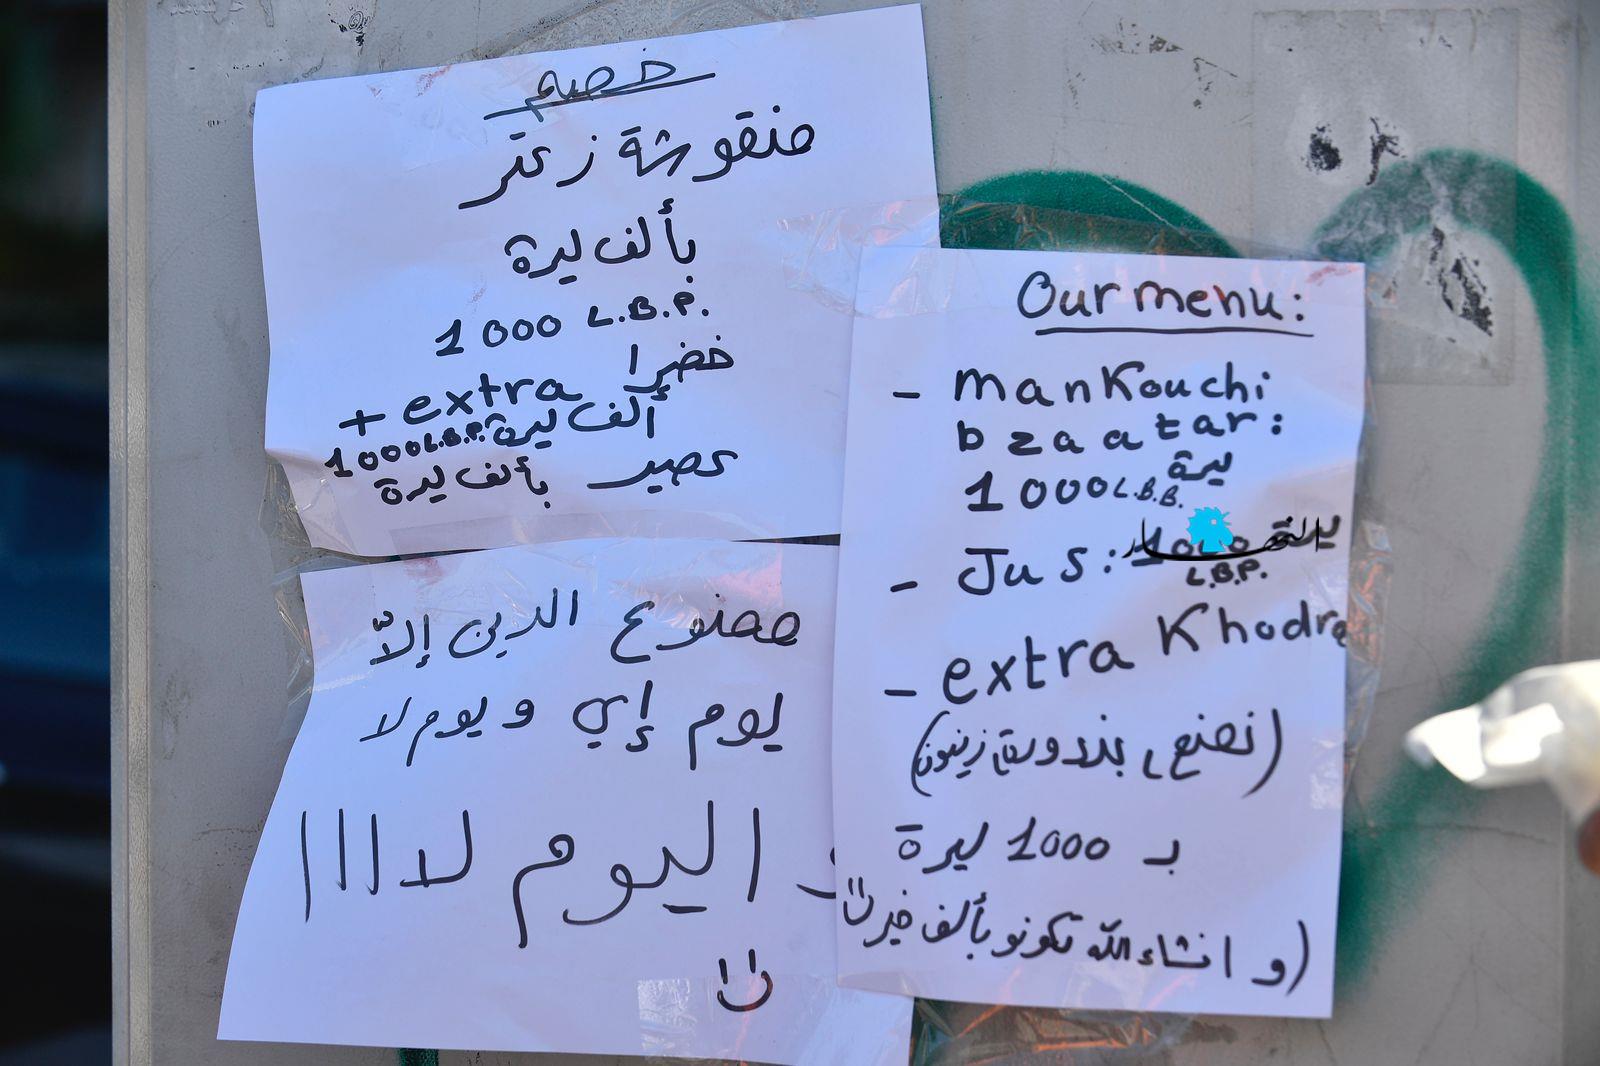 خصم
منقوشة زعتر
بألف ليرة
1000 L.B.P.
+ extra خضرا
ألف ليرة 1000 L.B.P.
عصير بألف ليرة
ممنوع الدين إلاّ
يوم إي و يوم لا
و اليوم لااااا
Our menu:
- Mankouchi
bzaatar:
1000 L.B.B. ليرة
- Jus: 1000 ليرة
L.B.P.
النهار
- extra Khodra
(نعنع، بندورة، زيتون)
بـ 1000 ليرة
(و انشاءالله تكونو بألف خير